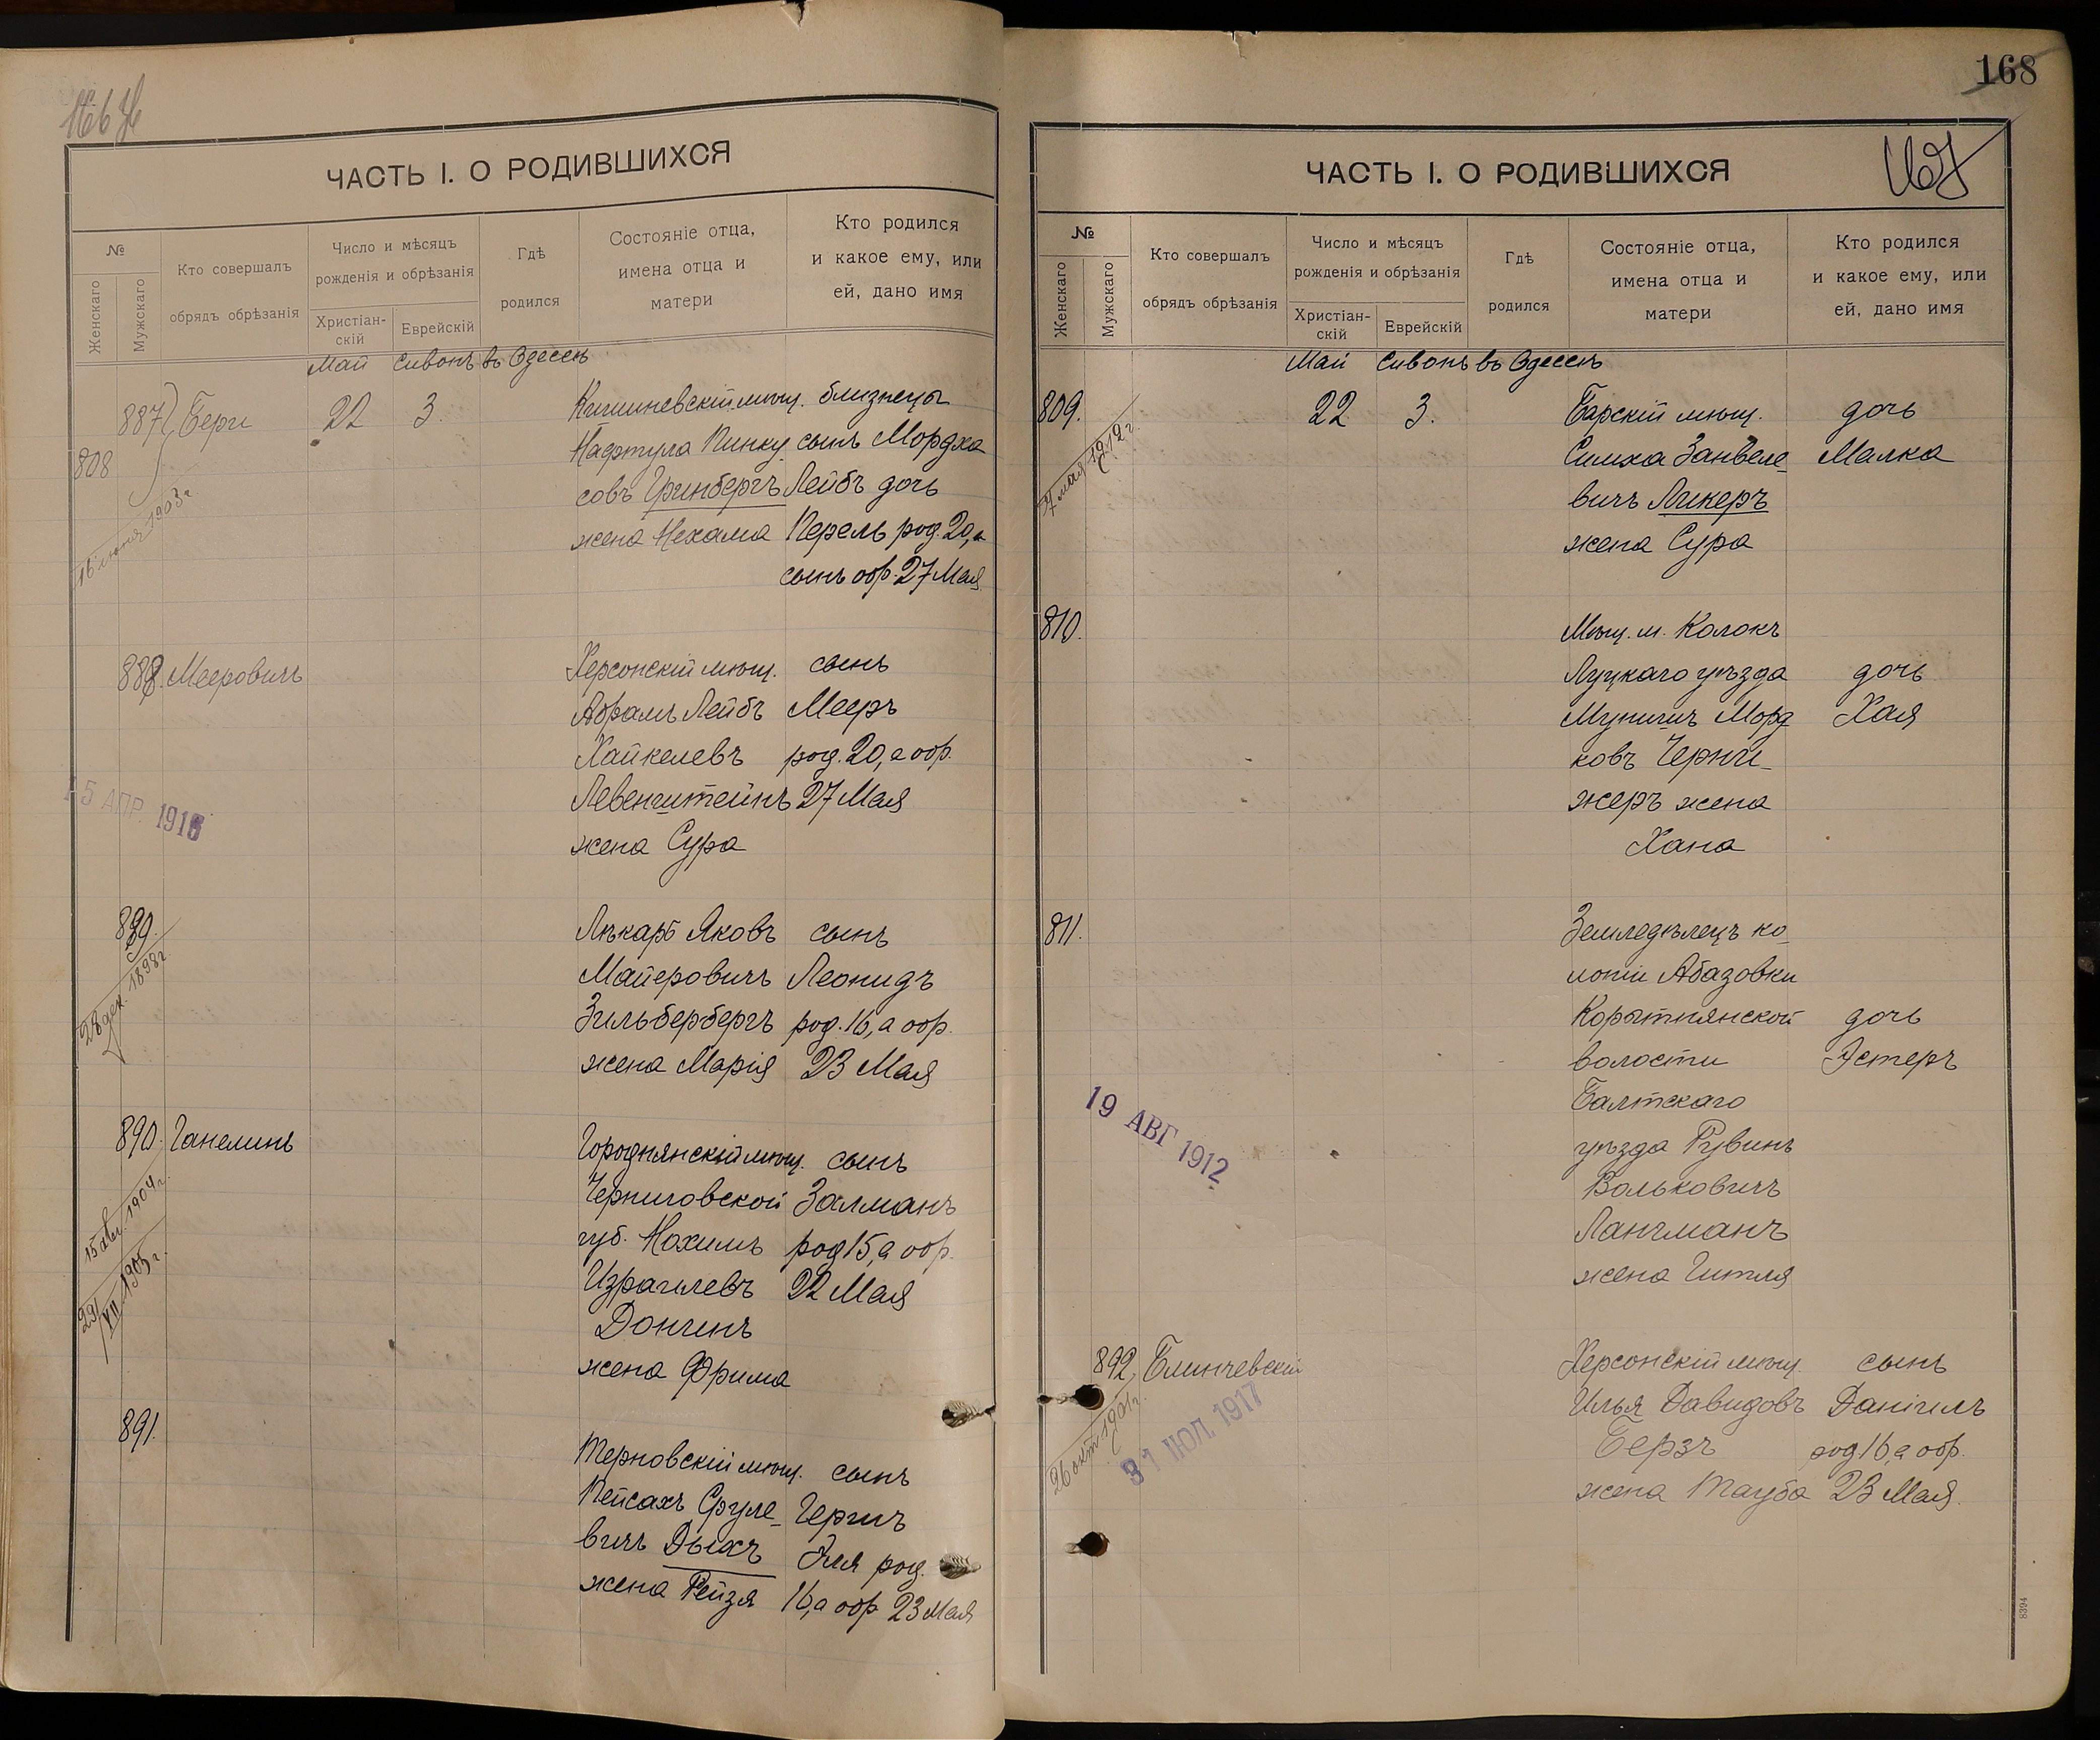 ЧАСТЬ I. О РОДИВШИХСЯ
№
Женскаго
Мужскаго
Кто совершалъ
обрядъ обрѣзанія
Число и мѣсяцъ
рожденія и обрѣзанія
Христіан-
скій
Еврейскій
Гдѣ
родился
Состояніе отца,
имена отца и
матери
Кто родился
и какое ему, или
ей, дано имя
Май Сивонъ въ Одессѣ
887 Бери 22 3. Кишиневскій мѣщ. близнецы
808
Нафтула Пинку сынъ Мордха
совъ Гринбергъ Лейбъ дочь
жена Нехама Перель род. 20, а
сынъ обр. 27 Мая
16 іюня 1903 г
888. Мееровичъ Херсонскій мѣщ. сынъ
Абрамъ Лейбъ Мееръ
Хайкелевъ род. 20, а обр.
Левенштейнъ 27 Мая
жена Сура
15 АПР. 1916
889. Лѣкарь Яковъ сынъ
Майеровичъ Леонидъ
Зильбербергъ род. 16, а обр.
жена Марія 23 Мая
28 дек. 1898 г.
890. Ганелинъ Городнянскій мѣщ. сынъ
Черниговской Залманъ
губ. Нохимъ род 15, а обр.
Израилевъ 22 Мая
Дончинъ
жена Фрима
15 авг. 1904 г.
29/VII 1905 г.
891. Терновскій мѣщ. сынъ
Пейсахъ Сруле- Гершъ
вичъ Дыхъ Эля род.
жена Рейзя 16, а обр 23 Мая
168
ЧАСТЬ I. О РОДИВШИХСЯ
167
№
Женскаго
Мужскаго
Кто совершалъ
обрядъ обрѣзанія
Число и мѣсяцъ
рожденія и обрѣзанія
Христіан-
скій
Еврейскій
Гдѣ
родился
Состояніе отца,
имена отца и
матери
Кто родился
и какое ему, или
ей, дано имя
Май Сивонъ въ Одессѣ
809. 22 3. Барскій мѣщ. дочь
Симха Занвеле- Малка
вичъ Ликеръ
жена Сура
7 мая 1912 г.
810. Мѣщ. м. Колокъ
Луцкаго уѣзда дочь
Мунишъ Морд Хая
ковъ Черни-
жеръ жена
Хана
811. Земледѣлецъ ко-
лоніи Абазовки
Корытнянской дочь
волости Эстеръ
Балтскаго
уѣзда Рувинъ
Вольковичъ
Лангманъ
жена Гитля
19 АВГ 1912
892. Блинчевскій Херсонскій мѣщ. сынъ
Илья Давидовъ Даніилъ
Берзъ род. 16, а обр.
жена Тауба 23 Мая.
26 окт 1901 г.
31 ІЮЛ. 1917
8394